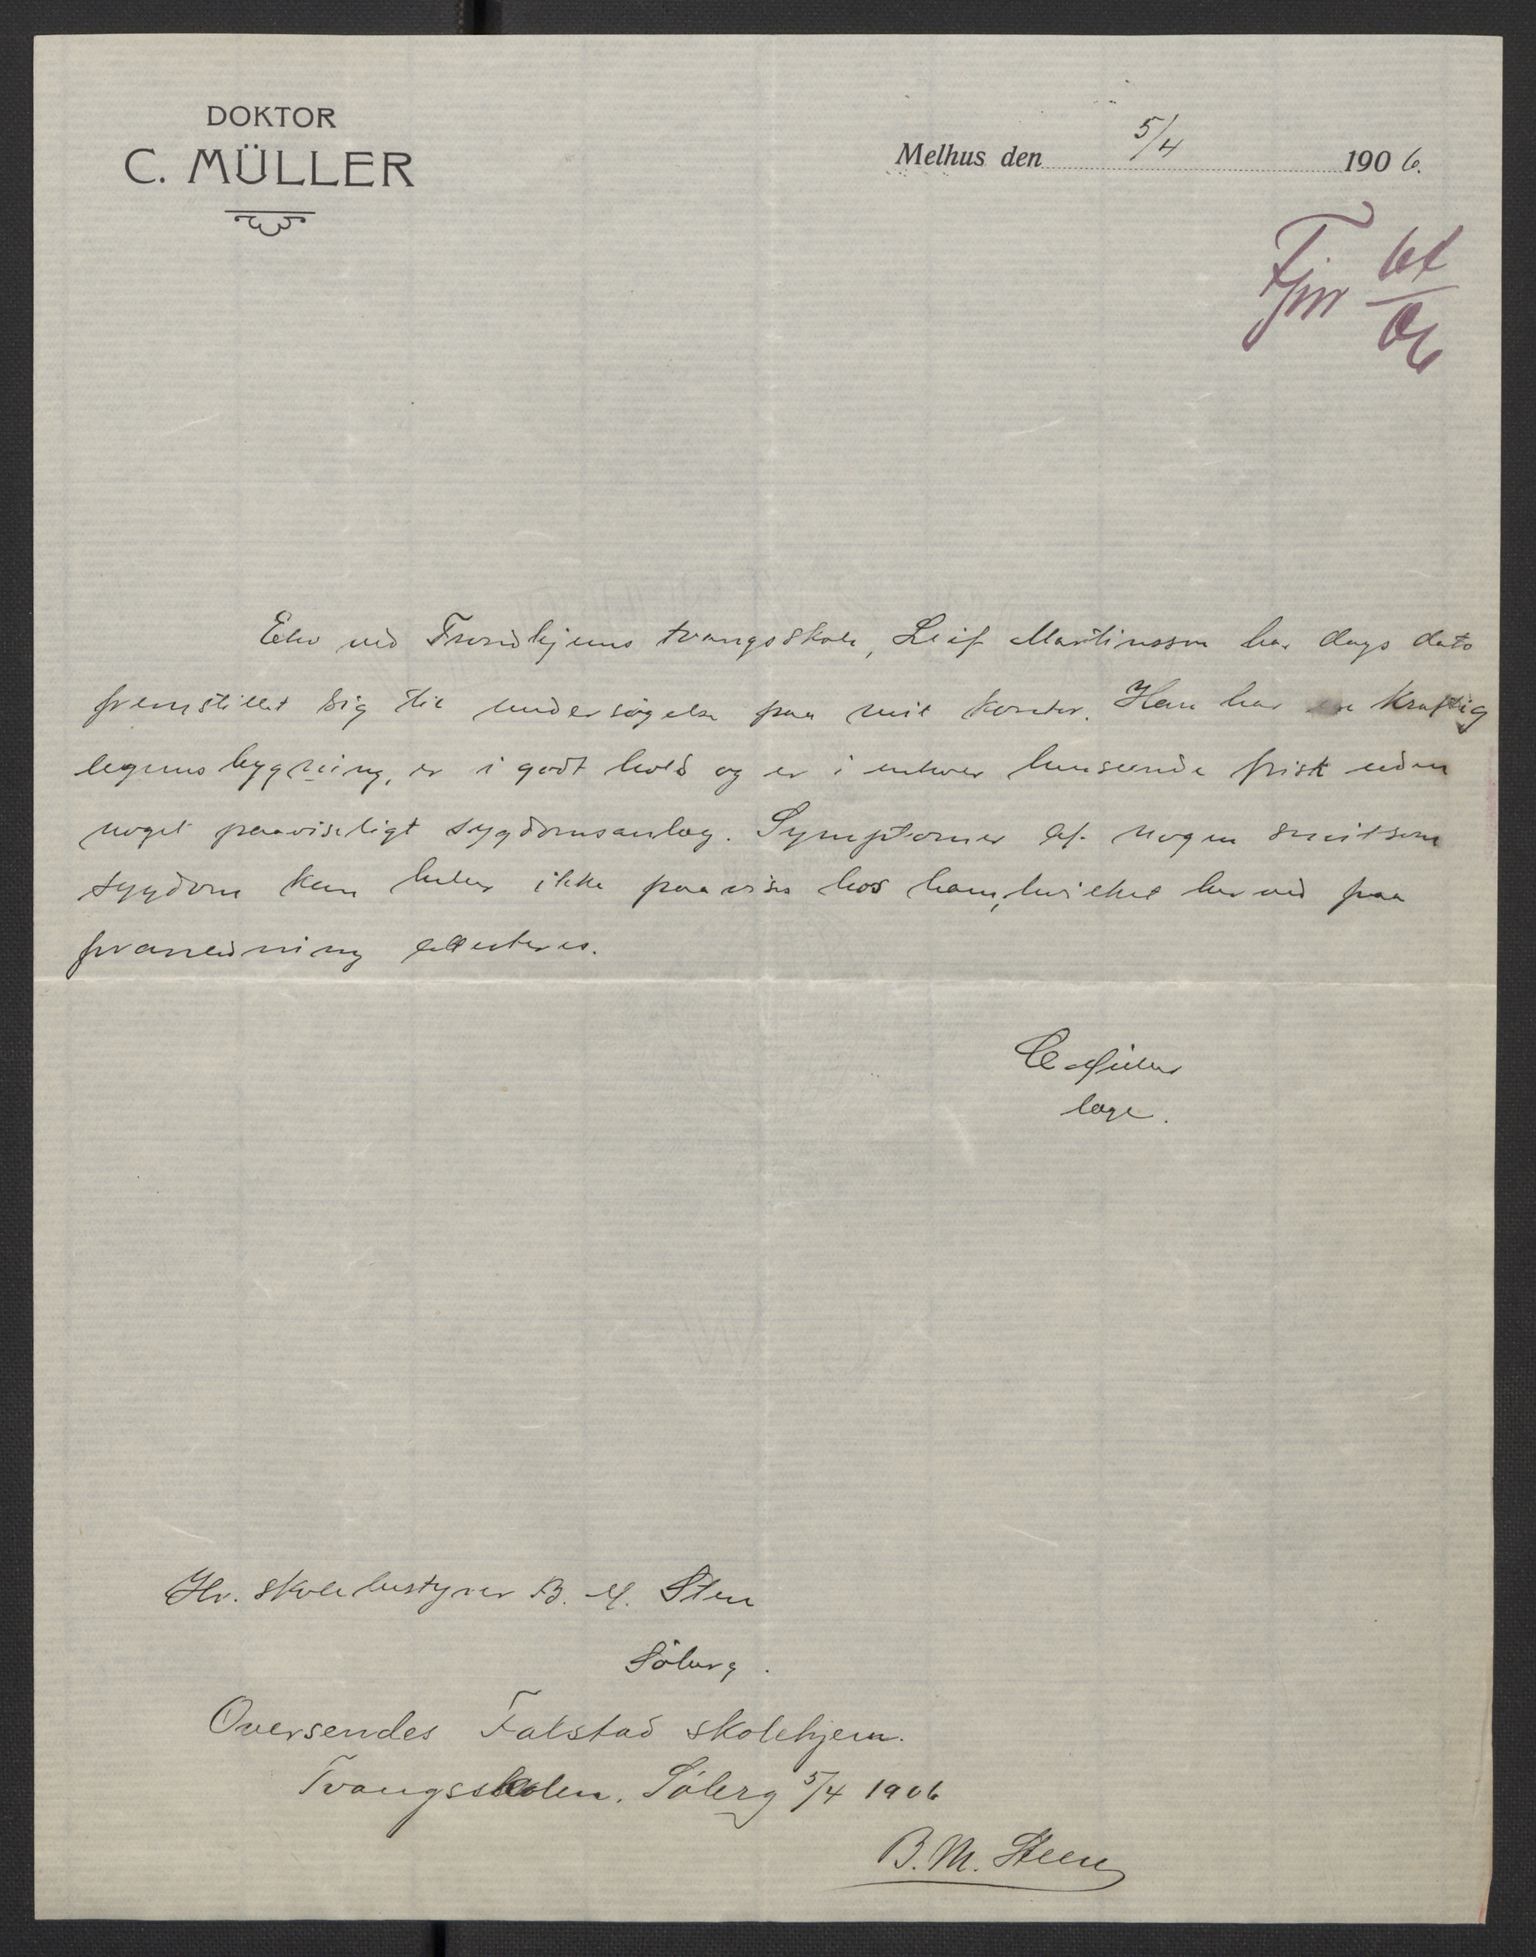 DOKTOR
C. MÜLLER
Melhus den 5/4 1906.
Fjm 61/06
Elev ved Trondhjems tvangsskole, Leif Martinsson har dags dato
fremstillet sig til undersøgelse paa mit kontor. Han har en kraftig
legemsbygning, er i godt hold og er i enhver henseende frisk uden
noget paaviseligt sygdomsanlæg. Symptomer af nogen smitsom
sygdom kan heller ikke paavises hos ham, hvilket herved paa
foranledning attesteres.
C Müller
læge.
Hr. skolebestyrer B. M. Sten
Søberg.
Oversendes Falstad skolehjem.
Tvangsskolen. Søberg 5/4 1906
B. M. Steen